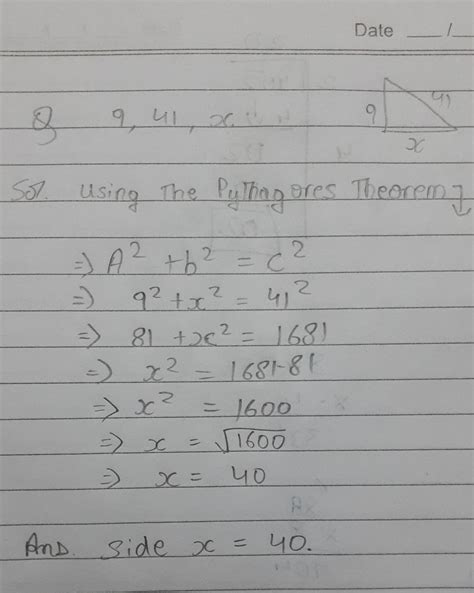 Date __/__
Q 9, 41, x
9 41
x
Sol. Using The Pythagores Theorem ↓
⇒ A² + b² = c²
⇒ 9² + x² = 41²
⇒ 81 + x² = 1681
⇒ x² = 1681-81
⇒ x² = 1600
⇒ x = √1600
⇒ x = 40
Ans. side x = 40.